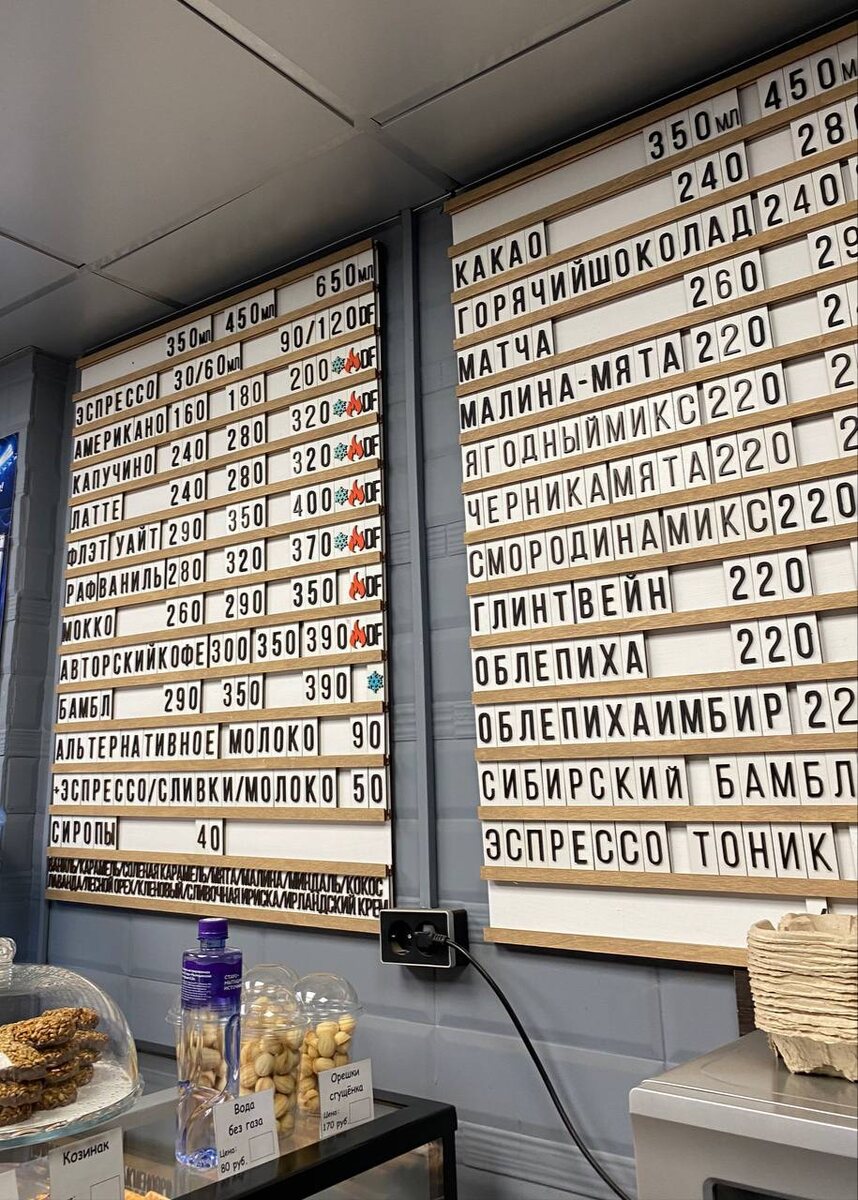 350мл 450мл 650мл
ЭСПРЕССО 30/60мл 90/120 DF
АМЕРИКАНО 160 180 200 DF
КАПУЧИНО 240 280 320 DF
ЛАТТЕ 240 280 320 DF
ФЛЭТ УАЙТ 290 350 400 DF
РАФ ВАНИЛЬ 280 320 370 DF
МОККО 260 290 350 DF
АВТОРСКИЙ КОФЕ 300 350 390 DF
БАМБЛ 290 350 390
АЛЬТЕРНАТИВНОЕ МОЛОКО 90
+ЭСПРЕССО/СЛИВКИ/МОЛОКО 50
СИРОПЫ 40
ВАНИЛЬ/КАРАМЕЛЬ/СОЛЕНАЯ КАРАМЕЛЬ/МЯТА/МАЛИНА/МИНДАЛЬ/КОКОС
ЛАВАНДА/ЛЕСНОЙ ОРЕХ/КЛЕНОВЫЙ/СЛИВОЧНАЯ ИРИСКА/ИРЛАНДСКИЙ КРЕМ
350мл 450м
КАКАО 240 280
ГОРЯЧИЙШОКОЛАД 240
МАТЧА 260 29
МАЛИНА-МЯТА 220 2
ЯГОДНЫЙМИКС 220 2
ЧЕРНИКАМЯТА 220
СМОРОДИНАМИКС 220
ГЛИНТВЕЙН 220
ОБЛЕПИХА 220
ОБЛЕПИХАИМБИР 22
СИБИРСКИЙ БАМБЛ
ЭСПРЕССО ТОНИК
Козинак
Вода
без газа
Цена:
80 руб.
Орешки
сгущёнка
Цена:
170 руб